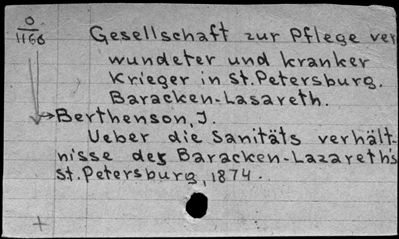 0
1166
Gesellschaft zur Pflege ver
wundeter und kranker
Krieger in St. Petersburg.
Baracken-Lasareth.
Berthenson, J.
Ueber die Sanitäts verhält-
nisse des Baracken-Lazareth's
St. Petersburg, 1874.